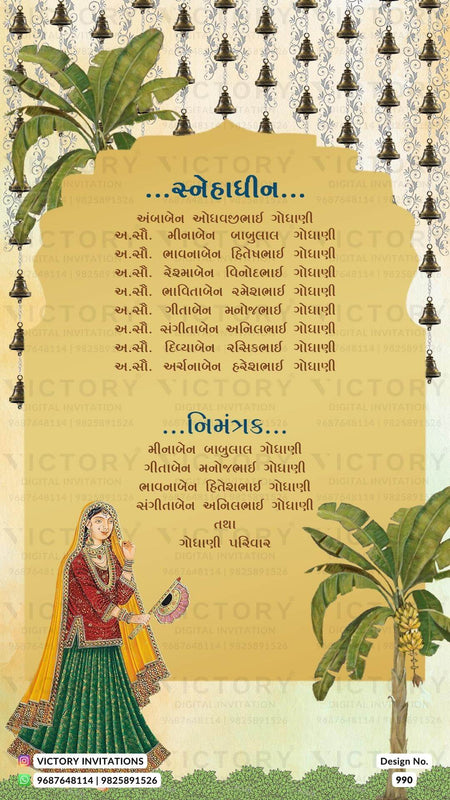 ...સ્નેહાધીન...
અંબાબેન ઓધવજીભાઈ ગોધાણી
અ.સૌ. મીનાબેન બાબુલાલ ગોધાણી
અ.સૌ. ભાવનાબેન હિતેષભાઈ ગોધાણી
અ.સૌ. રેશ્માબેન વિનોદભાઈ ગોધાણી
અ.સૌ. ભાવિતાબેન રમેશભાઈ ગોધાણી
અ.સૌ. ગીતાબેન મનોજભાઈ ગોધાણી
અ.સૌ. સંગીતાબેન અનિલભાઈ ગોધાણી
અ.સૌ. દિવ્યાબેન રસિકભાઈ ગોધાણી
અ.સૌ. અર્ચનાબેન હરેશભાઈ ગોધાણી
...નિમંત્રક...
મીનાબેન બાબુલાલ ગોધાણી
ગીતાબેન મનોજભાઈ ગોધાણી
ભાવનાબેન હિતેશભાઈ ગોધાણી
સંગીતાબેન અનિલભાઈ ગોધાણી
તથા
ગોધાણી પરિવાર
VICTORY INVITATIONS
9687648114 | 9825891526
Design No.
990
VICTORY
DIGITAL INVITATION
9687648114 | 9825891526